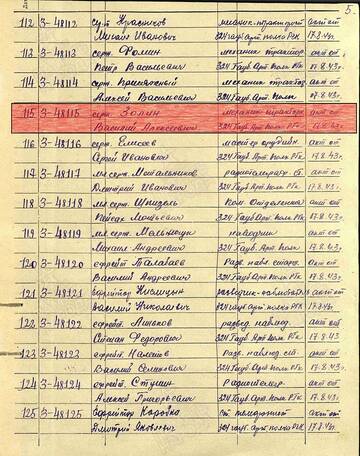 5.
112 З-48112 сут. Красиков механик-тракторист акт от
Михаил Иванович 324 гауб. арт. полк РГК 17.8.43г.
113 З-48113 серж. Фомин механик трактор. акт от
Петр Васильевич 324 Гауб. Арт. Полк РГк 17.8.43г.
114 З-48114 серж. механик трактор. акт от
Алексей Васильевич 324 Гауб. Арт. Полк 17.8.43г.
115 З-48115 серж. Зорин механик трактор. акт от
Василий Алексеевич 324 Гауб. Арт. полк РГк 17.8.43г.
116 З-48116 серж. Елисеев мастер орудийн. акт от
Сергей Иванович 324 Гауб. Арт. полк РГк 17.8.43г.
117 З-48117 мл. серж. Мешалкинов акт от
Дмитрий Иванович 324 Гауб. Арт. полк 17.8.43г.
118 З-48118 мл. серж. Шпигель Ком. Отделения акт от
324 Гауб. Арт. полк РГк 17.8.43г.
119 З-48119 мл. серж. наводчик акт от
Михаил Андреевич 324 Гауб. Арт. полк 17.8.43г.
120 З-48120 ефрейт. Талалаев разв. набл. акт от
Василий Андреевич 324 Гауб. Арт. полк РГк 17.8.43г.
121 З-48121 Ефрейтор Кислицын разведчик-наблюдат. акт от
Василий Николаевич 324 гауб. арт. полк РГК 17.8.43г.
122 З-48122 ефрейт. развед. наблюд. акт от
Степан Федорович 324 Гауб. Арт. Полк 17.8.43г.
123 З-48123 ефрейт. Налетов Разв. наблюд. акт от
Василий Семенович 324 Гауб. Арт. полк РГк 17.8.43г.
124 З-48124 ефрейт. Ступин Радиотелегр. акт от
Алексей Григорьевич 324 Гауб. Арт. Полк 17.8.43г.
125 З-48125 Ефрейтор Коробко ст. телефонист акт от
Дмитрий Яковлевич 324 гауб. арт. полк РГК 17.8.43г.